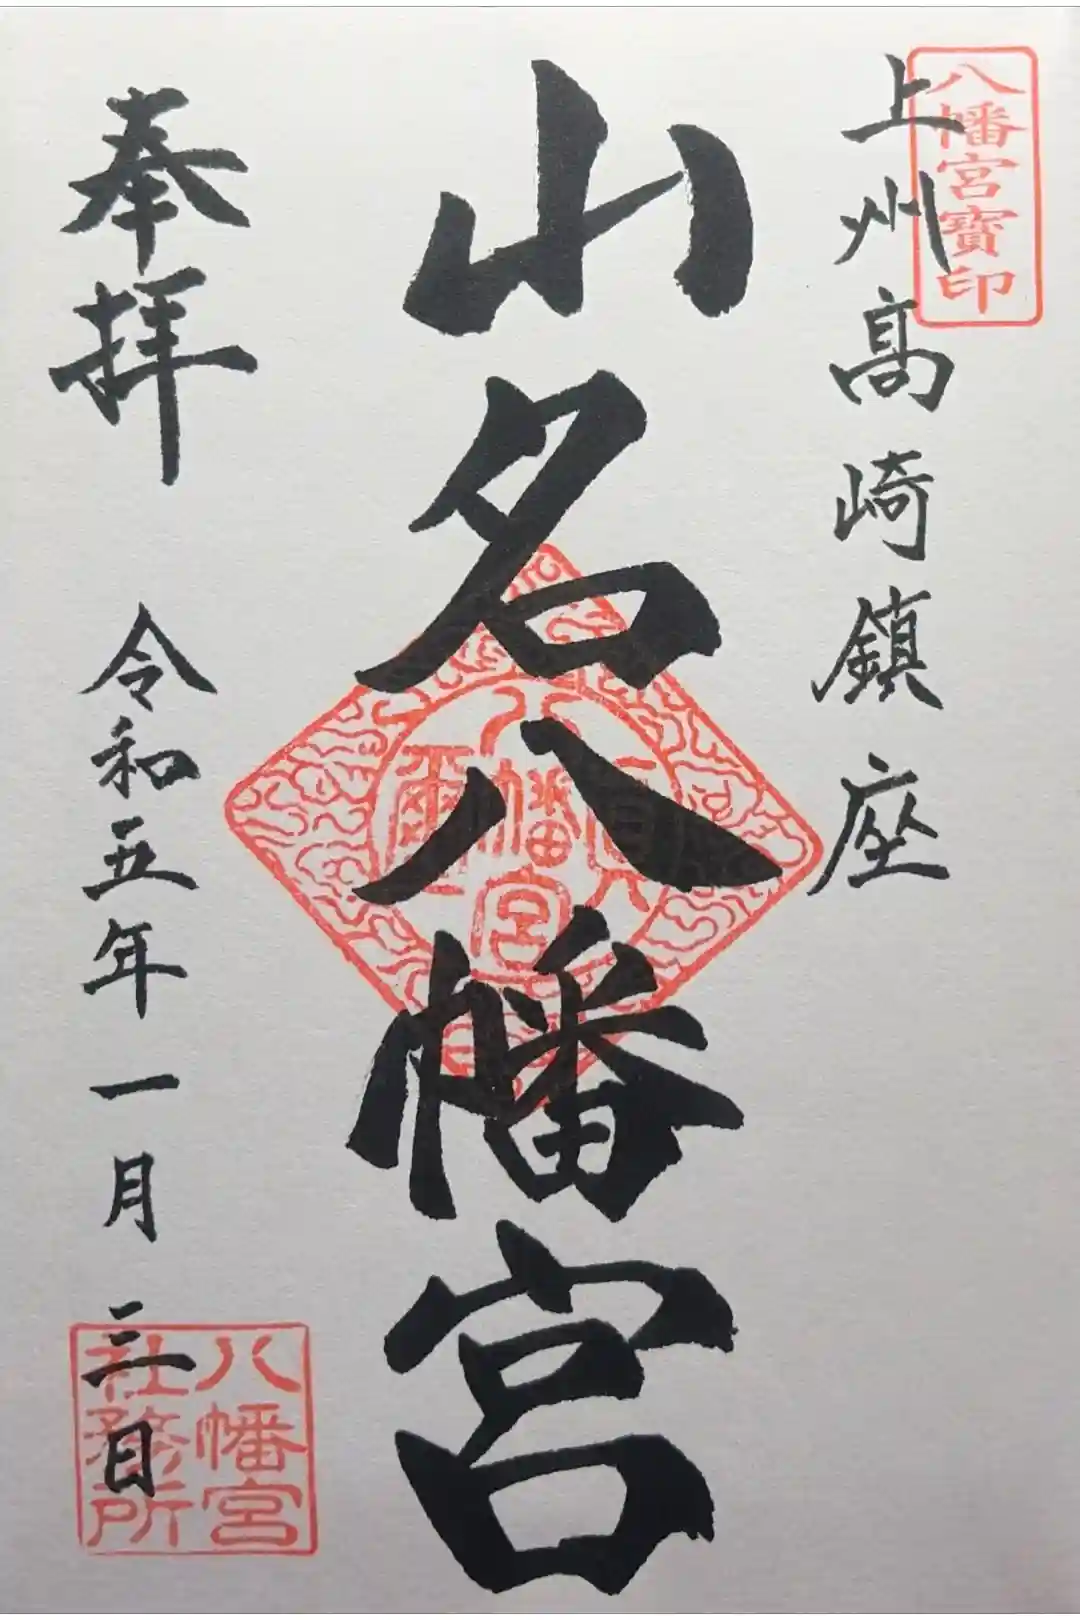 八幡宮寶印
上州髙崎鎮座
山名八幡宮
奉拝
令和五年一月三日
八幡宮
社務所